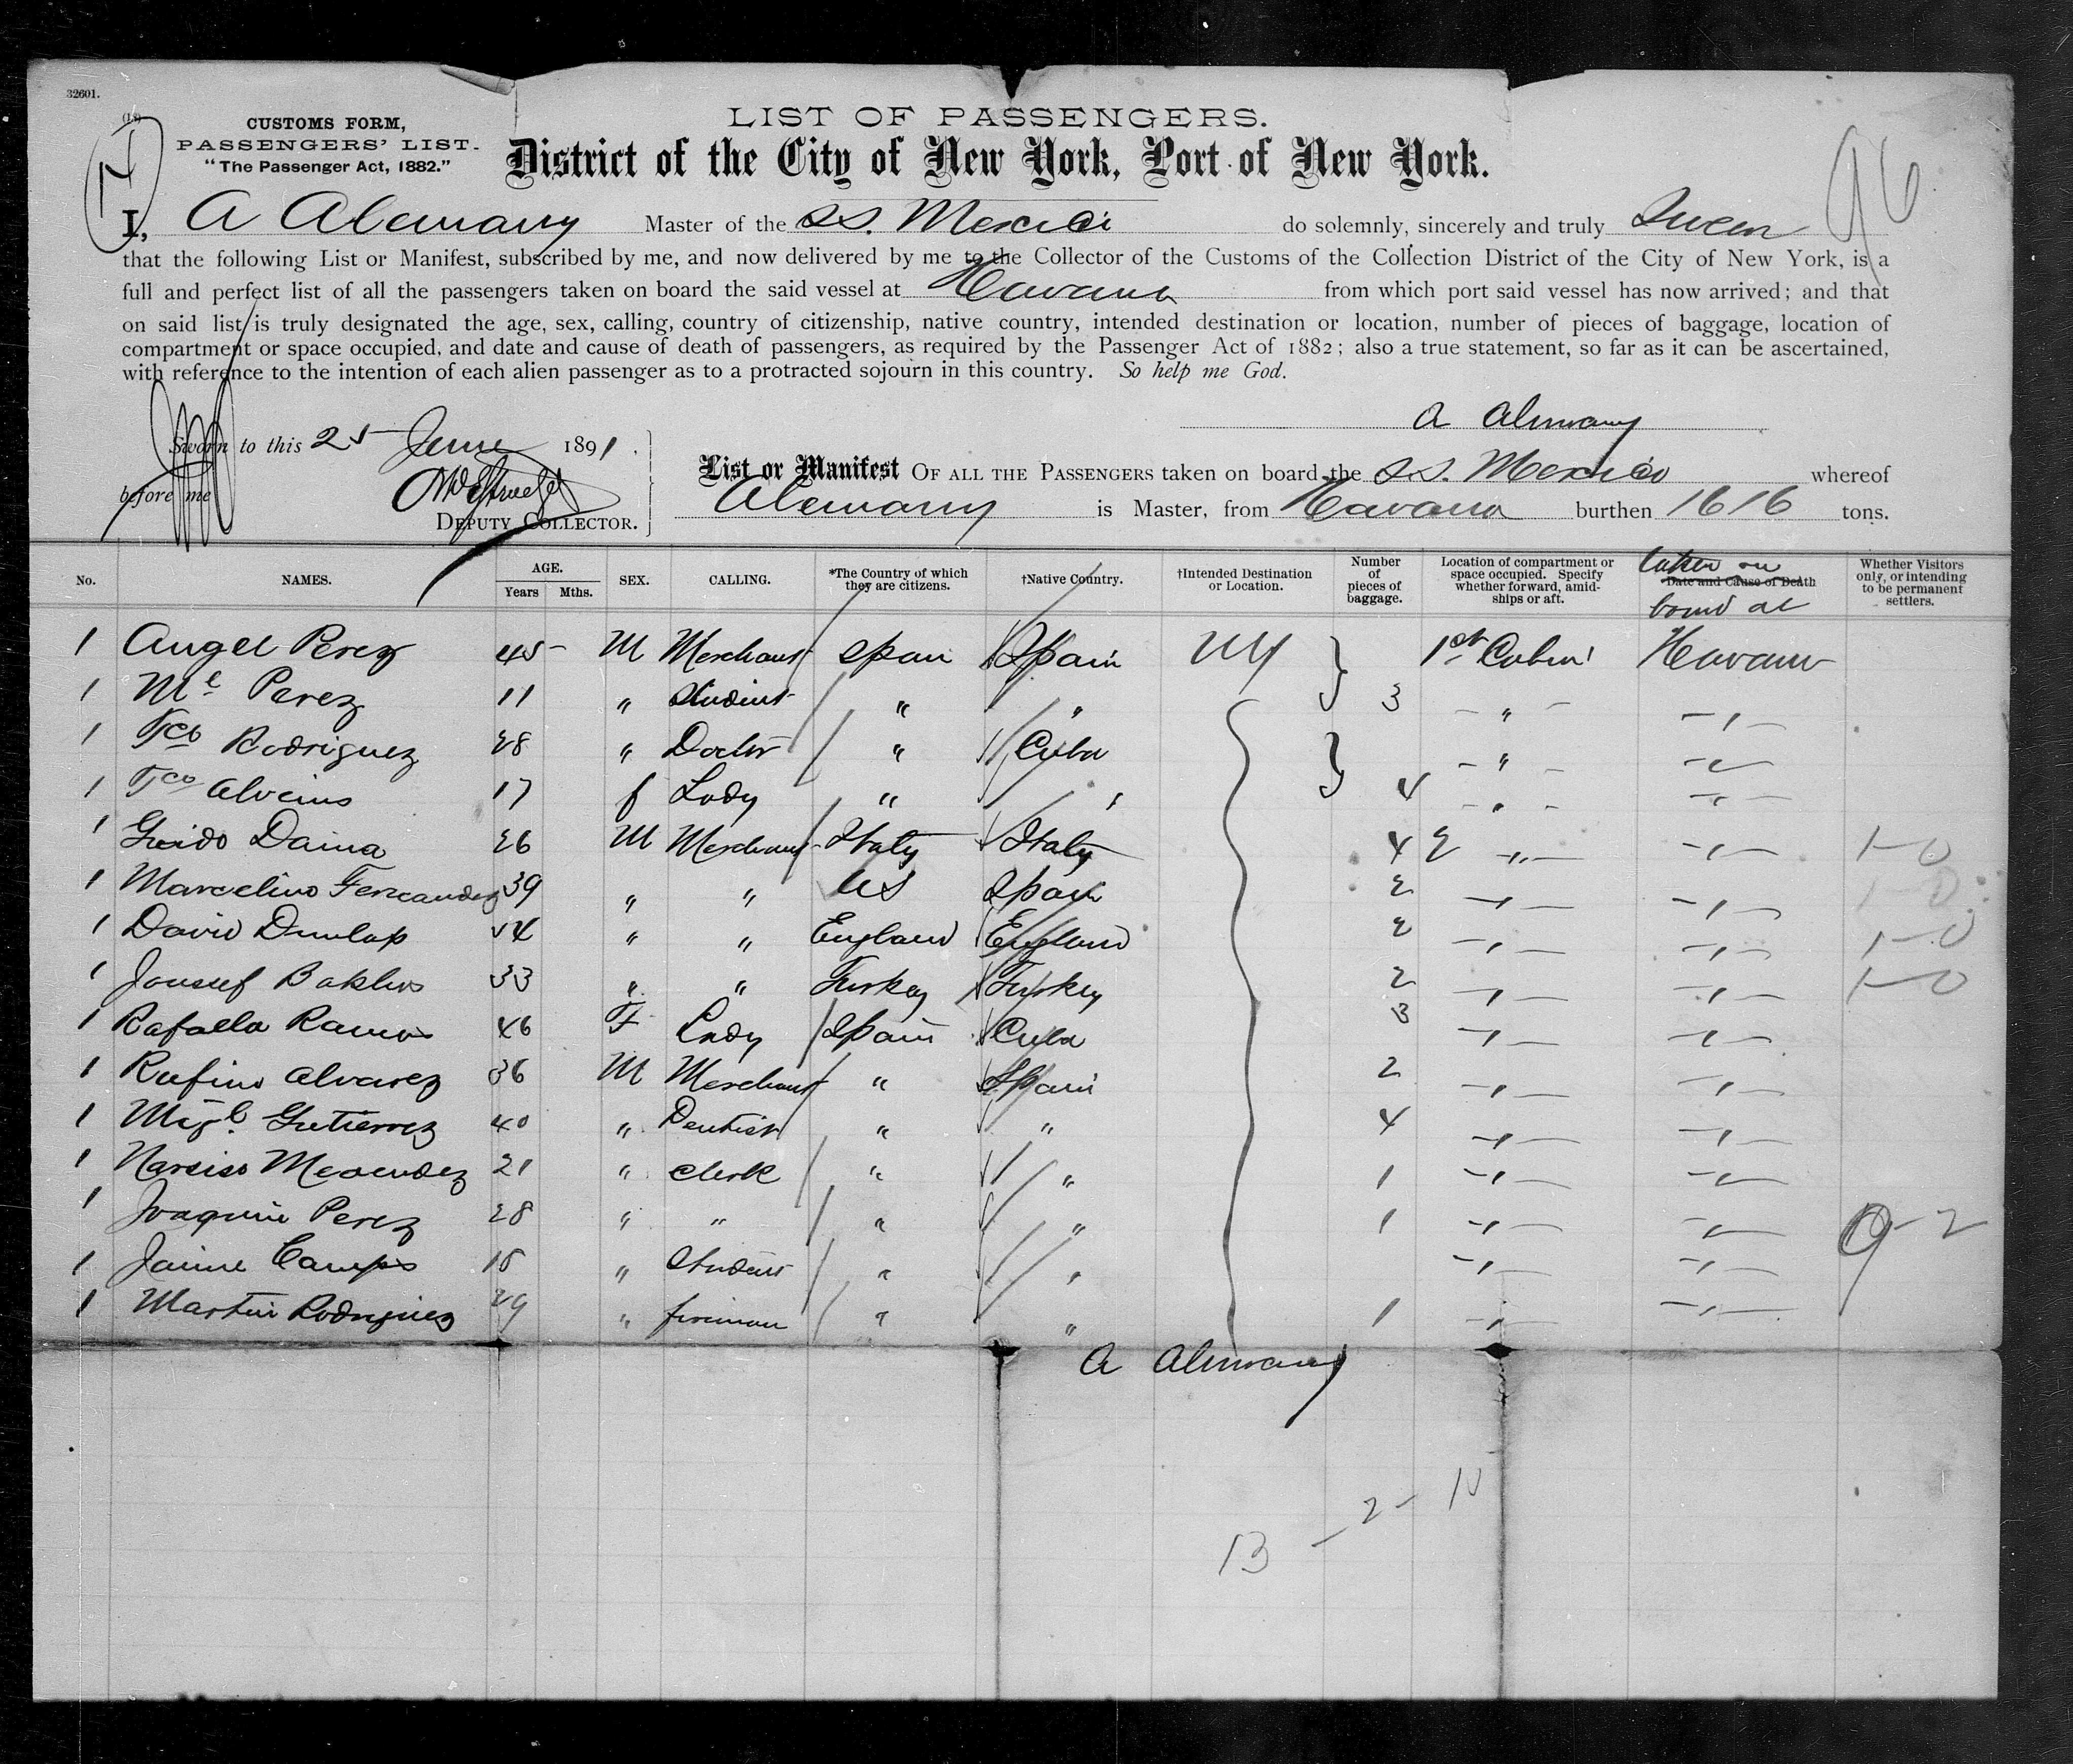 32601.
(18)
CUSTOMS FORM,
PASSENGERS' LIST.
"The Passenger Act, 1882."
LIST OF PASSENGERS.
District of the City of New York, Port of New York.
96
I, A Alemany Master of the SS. Mexico do solemnly, sincerely and truly Swear
that the following List or Manifest, subscribed by me, and now delivered by me to the Collector of the Customs of the Collection District of the City of New York, is a
full and perfect list of all the passengers taken on board the said vessel at Havana from which port said vessel has now arrived; and that
on said list is truly designated the age, sex, calling, country of citizenship, native country, intended destination or location, number of pieces of baggage, location of
compartment or space occupied, and date and cause of death of passengers, as required by the Passenger Act of 1882; also a true statement, so far as it can be ascertained,
with reference to the intention of each alien passenger as to a protracted sojourn in this country. So help me God.
A Alemany
Sworn to this 25 June 1891.
before me
DEPUTY COLLECTOR.
List or Manifest OF ALL THE PASSENGERS taken on board the SS. Mexico whereof
Alemany is Master, from Havana burthen 1616 tons.
No. NAMES. AGE. Years Mths. SEX. CALLING. *The Country of which they are citizens. †Native Country. †Intended Destination or Location. Number of pieces of baggage. Location of compartment or space occupied. Specify whether forward, amidships or aft. Date and Cause of Death taken on board at Whether Visitors only, or intending to be permanent settlers.
1 Angel Perez 45 M Merchant Spain Spain NY 1st Cabin Havana
1 Ml Perez 11 " Student " " 3 - " - - " -
1 Fco Rodriguez 28 " Doctor " Cuba - " - - " -
1 17 f Lady " " 4 - " - - " -
1 Guido Daina 26 M Merchant Italy Italy 4 2 - " - - " - 1-0
1 Marcelino Fernandez 39 " " US Spain 2 - " - - " - 1-0
1 David Dunlap 54 " " England England 2 - " - - " - 1-0
1 Joussef 33 " " Turkey Turkey 2 - " - - " - 1-0
1 Rafaella Ramos 46 F Lady Spain Cuba 3 - " - - " -
1 Rufino Alvarez 36 M Merchant " Spain 2 - " - - " -
1 Migl. Gutierrez 40 " Dentist " " 4 - " - - " -
1 Narsiso Menendez 21 " Clerk " " 1 - " - - " -
1 Joaquin Perez 28 " " " " 1 - " - - " -
1 Jaime Camps 15 " Student " " - " - - " -
1 Martin Rodriguez 29 " fireman " " 1 - " - - " -
A Alemany
13 - 2 - 10